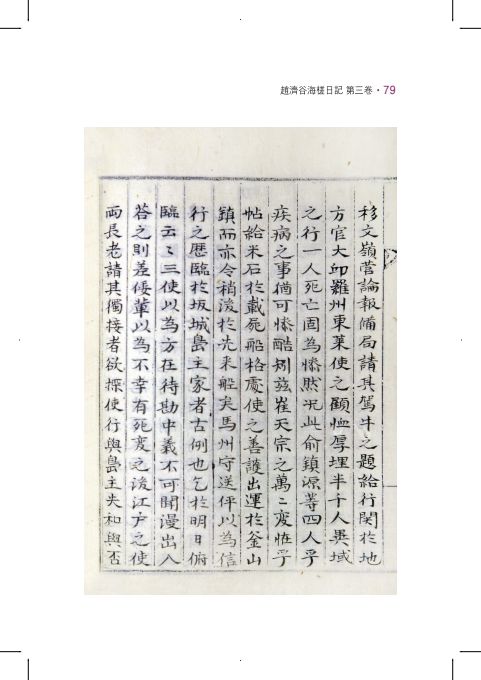 趙濟谷海槎日記 第三卷 · 79
移文嶺營論報備局請其駕牛之題給行関於地
方官大邱羅州東萊使之顧恤厚埋半千人異域
之行一人死亡固為慘然况此俞鎮源等四人乎
疾病之事猶可慘酷矧玆崔天宗之萬〻變恠乎
帖給米石於載屍船格處使之善護出運於釜山
鎮而亦令稍後於先来船矣馬州守送伻以為信
行之歷臨於坂城島主家者古例也乞於明日俯
臨云〻三使以為方在待勘中義不可閒漫出入
答之則差倭輩以為不幸有死変之後江戶之使
両長老請其獨接者欲探使行與島主失和與否